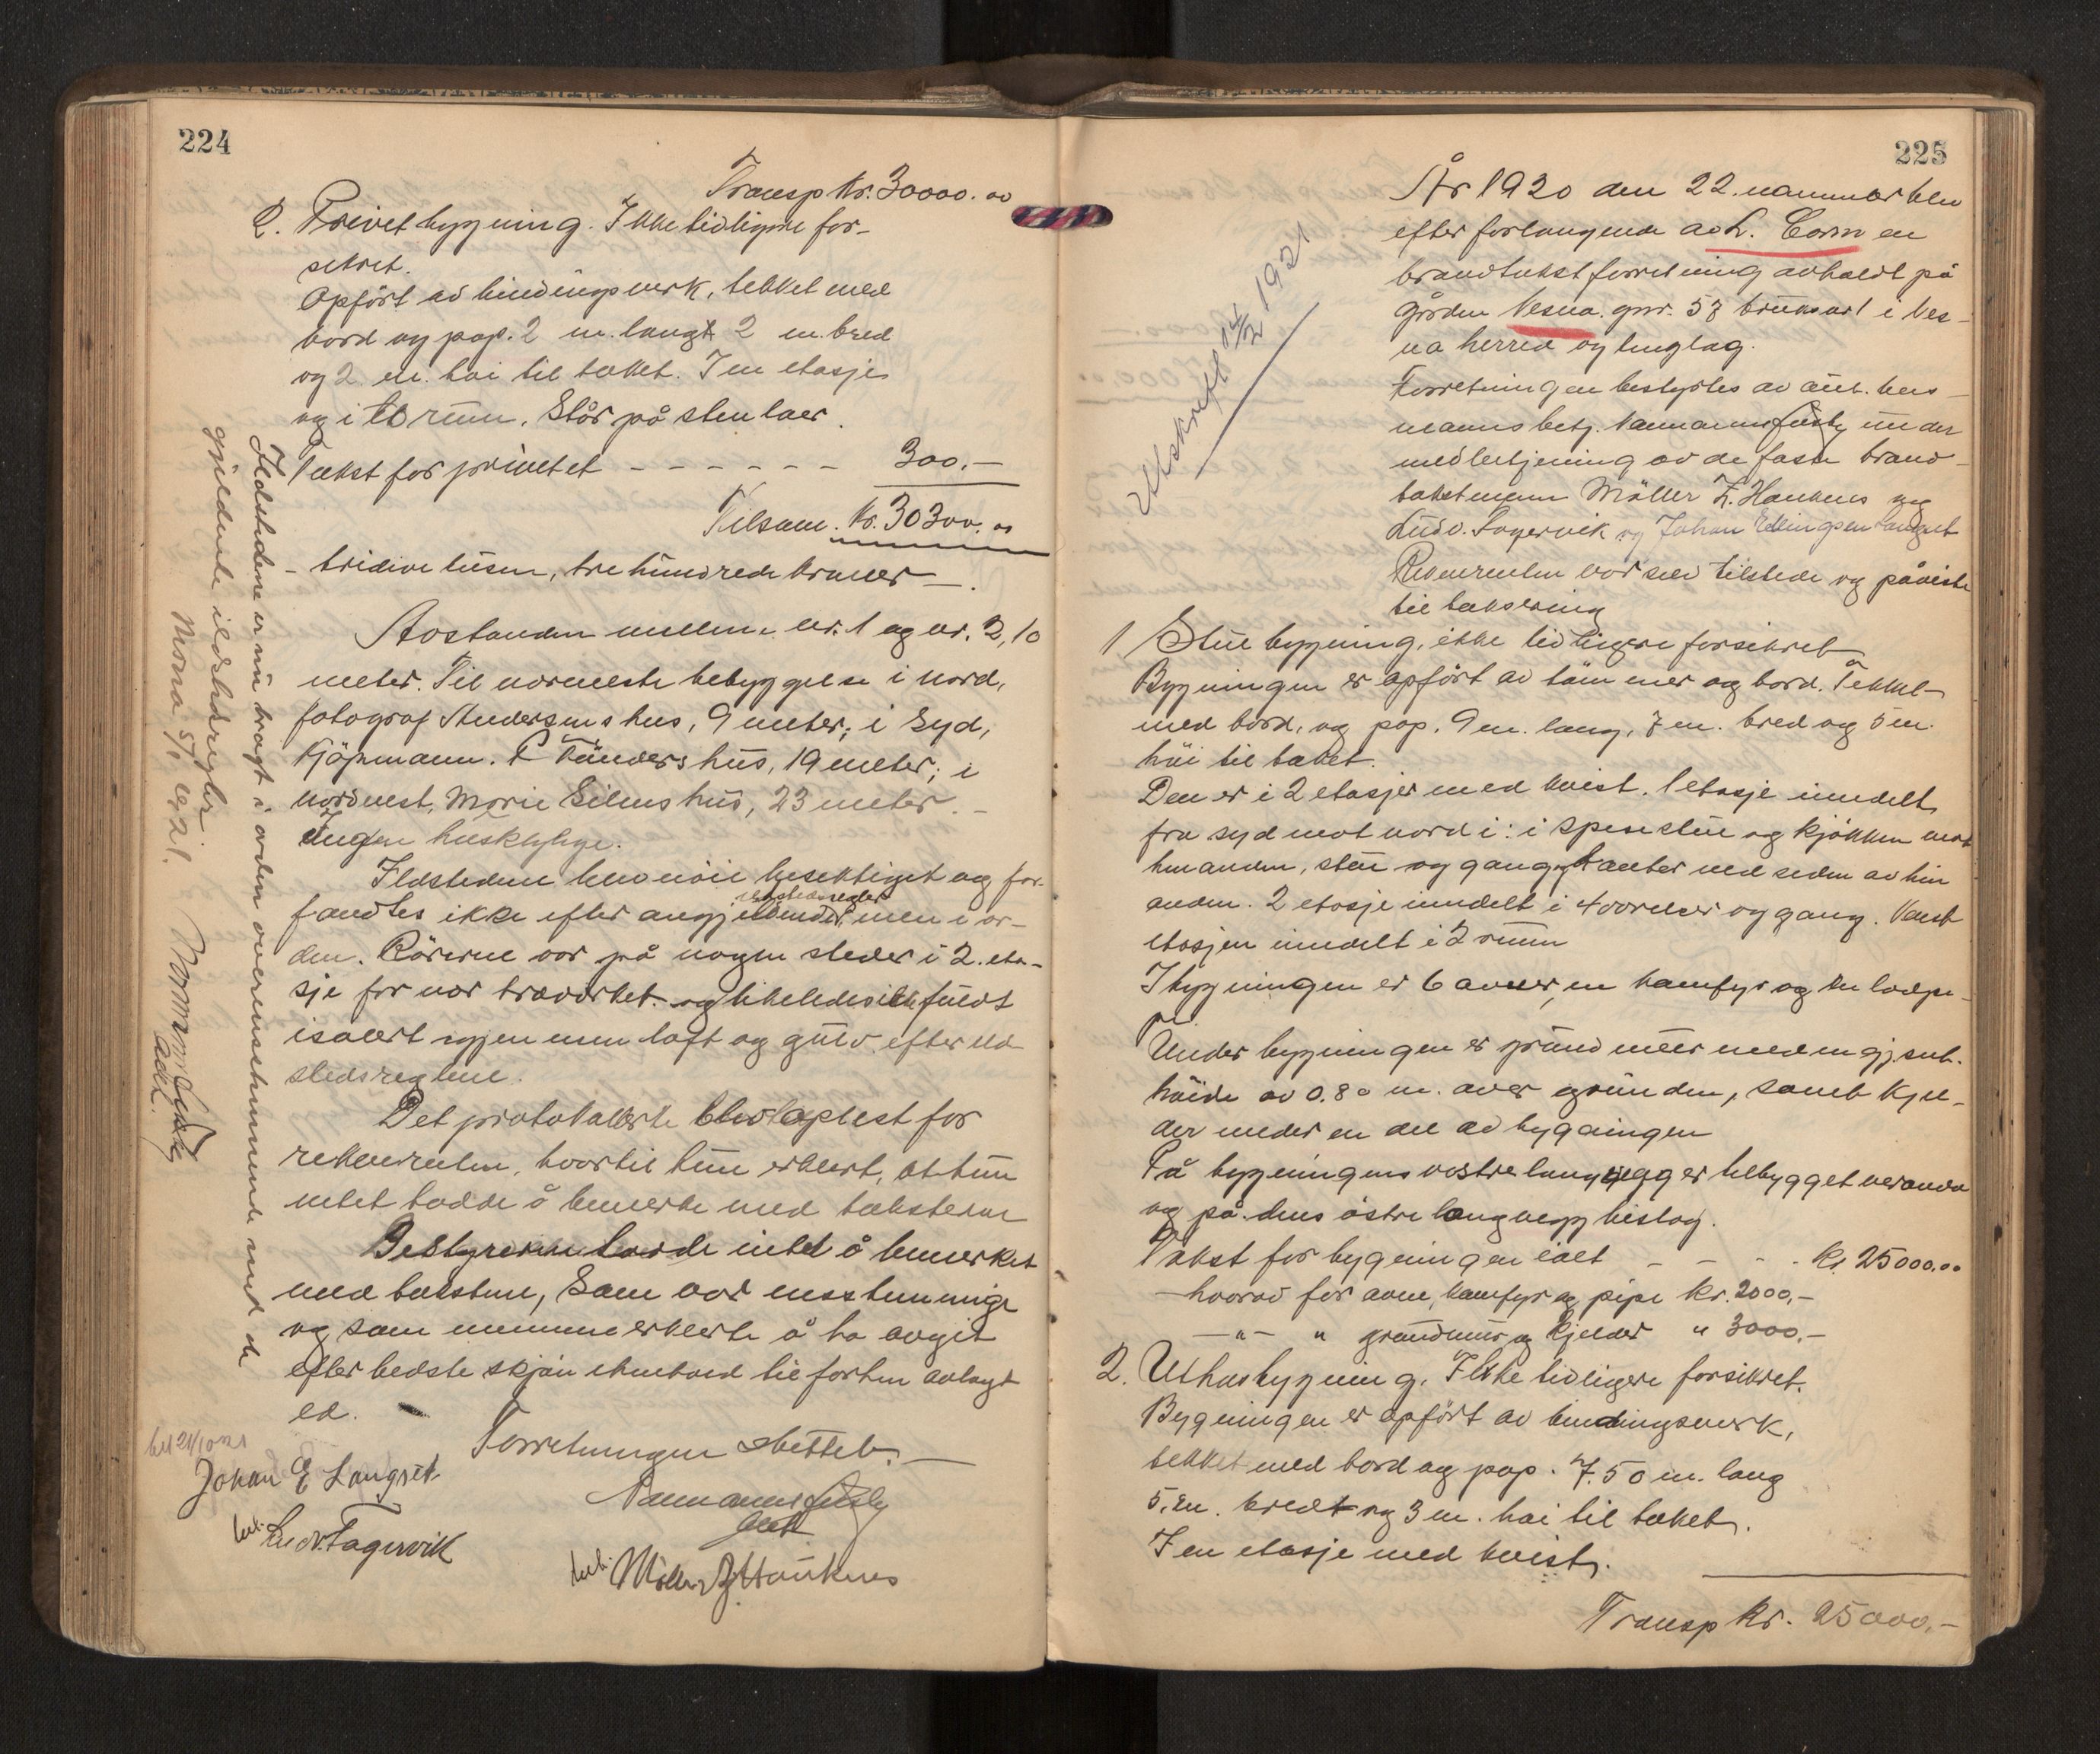 224
Transp Kr. 30000.00
2. Privetbygning. Ikke tidligere for-
sikret.
Opført av bindingsverk, tekket med
bord og pap. 2 m. langt 2 m. bred
og 2 m. høi til taket. I en etasje
og i to rum. Står på stenlaer.
Takst for privetet - - - - - - 300.-
Tilsam. Kr. 30300.00
- tridive tusen, tre hundrede kroner -
Avstanden mellem nr. 1 og nr. 2, 10
meter. Til nærmeste bebyggelse i nord,
fotograf Andersens hus, 9 meter; i syd,
Kjøpmann. P. hus, 19 meter; i
nordvest, Marie hus, 23 meter. -
Ingen huskhyhye.
Ildstedene blev nøie besiktiget og for-
fandtes ikke efter angjeldende ildstedsregler men i or-
den. Rørerne var på nogen steder i 2. eta-
sje for nær træverket og likeledes ikke fuldt
isolert igjennem loft og gulv efter ild-
stedsreglene.
Det protokollerte blev oplest for
rekvirenten, hvortil hun erklært, at hun
intet hadde å bemerke med taksterne
Bestyreren hadde intet å bemerket
med takstene, som var enstemmige
og som mennene erklærte å ha avgit
efter bedste skjøn i henhold til forhen avlagt
ed.
Forretningen sluttet. -
Johan E Langset
Ludv. Fagervik
Møller Z. Hauknes
Ildstedene er nu bragt i orden overensstemmende med de
gjeldende ildstedsregler.
Mosna 5/1 1921.
225
År 1920 den 22. blev
efter forlangende av L. Corn en
brandtakstforretning avholdt på
gården Nesna. gnr. 57 bruksnr 1 i Nes-
na herred og tinglag.
Forretningen bestyrtes av aut. lens-
mannsbetj. under
medbetjening av de faste brand-
takstmenn Møller Z. Hauknes og
Ludv. Fagervik og Johan Ellingsen Langset
Rekvirenten var selv tilstede og påviste
til taksering
1. Stuebygning, ikke tidligere forsikret
Bygningen er opført av tømmer og bord. Tekket
med bord, og pap. 9 m. lang, 7 m. bred og 5 m.
høi til taket.
Den er i 2 etasjer med kvist. 1 etasje inndelt
fra syd mot nord i: i spisestue og kjøkken mot
hinanden, stue og gang, kamber ved siden av hin
anden. 2 etasje inndelt i 4 værelser og gang. Kvist
etasjen inndelt i 2 rum
I bygningen er 6 avner, en kamfyr og en løpe-
pi.
Under bygningen er grundmuur med en gj.snit.
høide av 0.80 m. over grunden, samt kjel-
der under en del av bygningen
På bygningens vestre langvegg er tilbygget veranda
og på dens østre langvegg bislag.
Takst for bygningen ialt - - - Kr. 25000.00
hvorav for avne, kamfyr og pipe kr. 2000,-
- " - " grundmur og kjelder " 3000,-
2. Uthusbygning. Ikke tidligere forsikret.
Bygningen er opført av bindingsverk,
tekket med bord og pap. 7.50 m. lang
5. m. bredt og 3 m. høi til taket.
I en etasje med kvist.
Transp Kr. 25000,-
Utskrift 14/2 1921